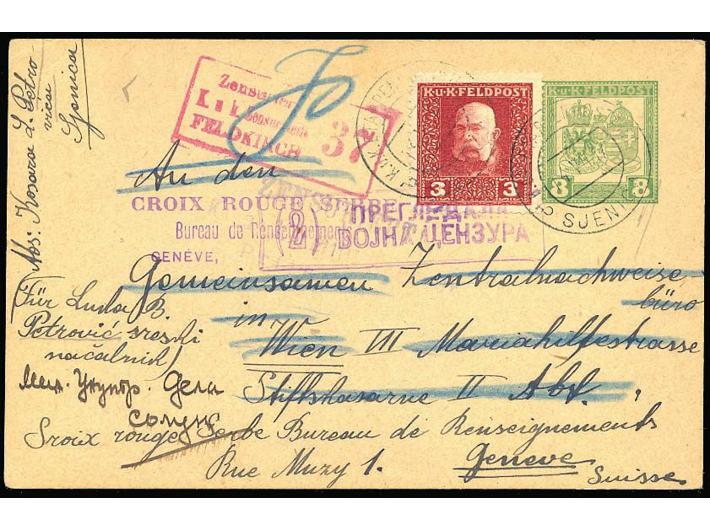 Abs: Kosara L. Petro-
vića
Sjenica
Zensuriert
K.u.k. Zensurstelle
FELDKIRCH
37
K.u.K. FELDPOST
3 3
K.u.K. FELDPOST
8 8
SJENI
An den
CROIX ROUGE SERBE
Bureau de Renseignements
GENÈVE,
(2) ПРЕГЛЕДАЛА
ВОЈНА ЦЕНЗУРА
Gemeinsamen Zentralnachweise
büro
in
Wien III Mariahilfestrasse
Stiftskaserne II Abt.
(Für Luda B.
Petrović sreski
načalnik)
Дела
Croix rouge Serbe Bureau de Renseignements
Rue Muzy 1. Geneve
Suisse